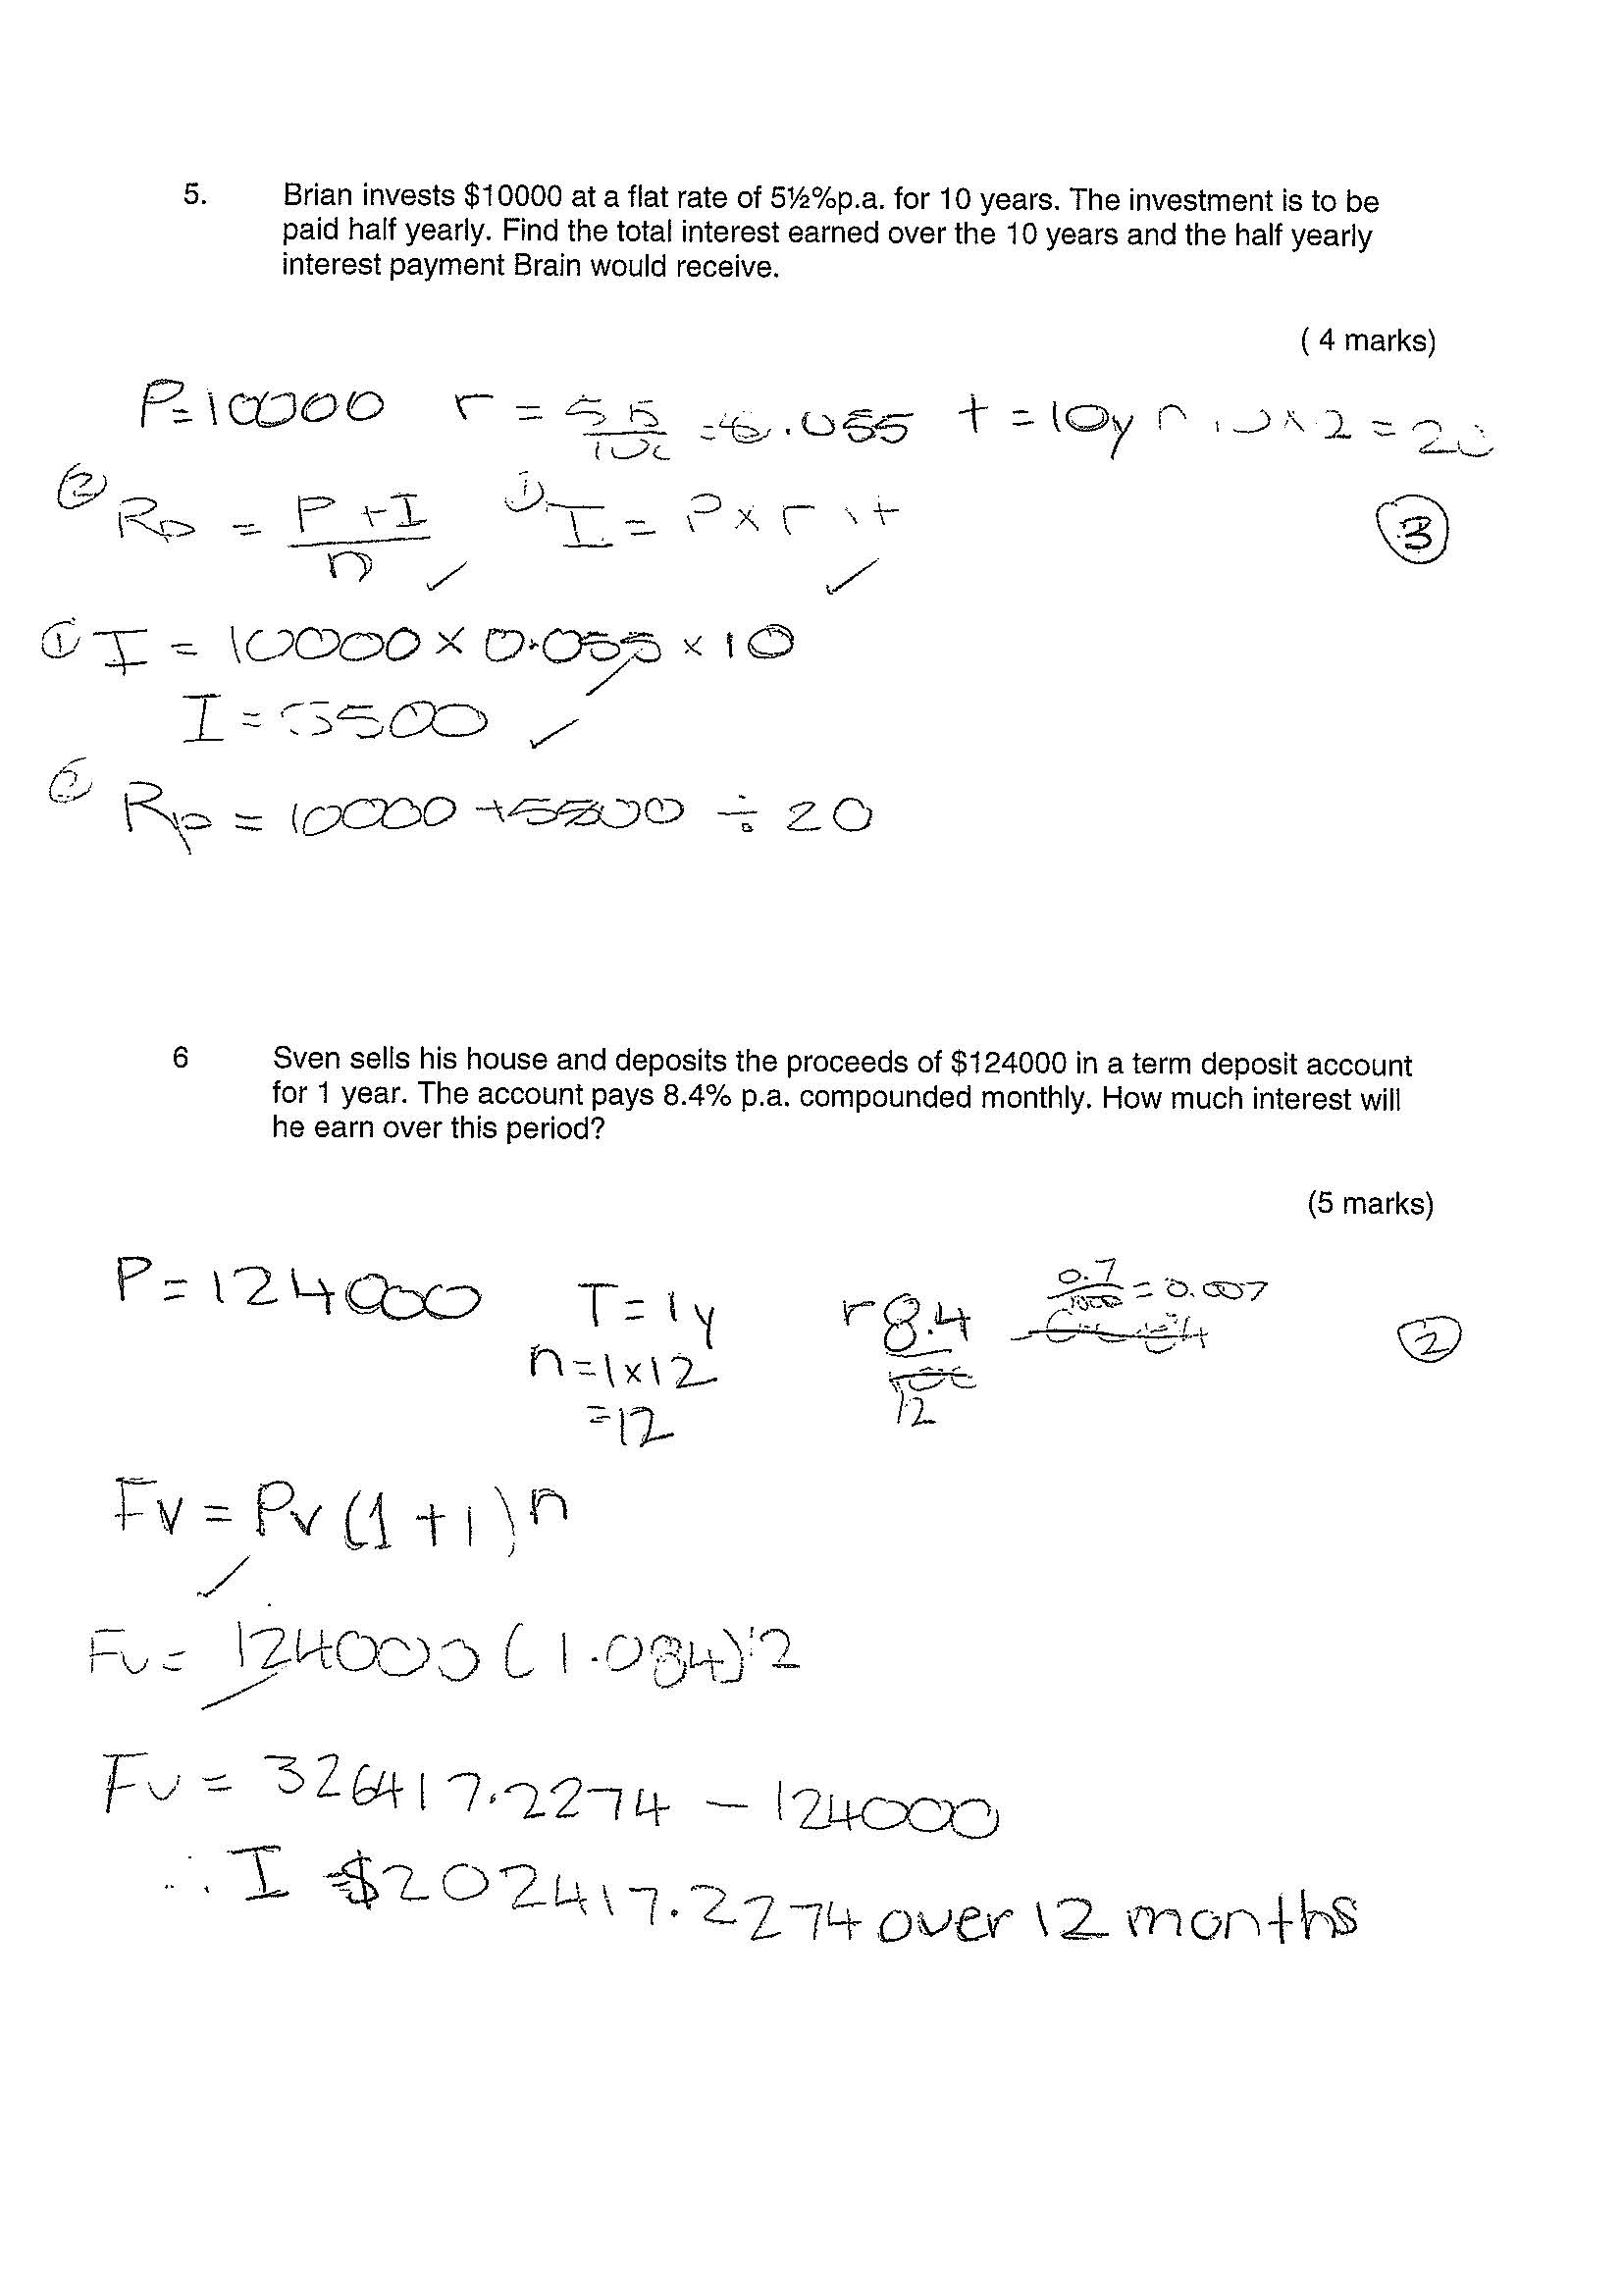 5. Brian invests $10000 at a flat rate of 5½%p.a. for 10 years. The investment is to be
paid half yearly. Find the total interest earned over the 10 years and the half yearly
interest payment Brain would receive.
( 4 marks)
P=10000 r = 5.5/100 = 0.055 t = 10y n 10 x 2 = 20
② Rp = P + I / n ✓ ① I = P x r x t ✓
③
① I = 10000 x 0.055 x 10 ✓
I = 5500 ✓
② Rp = 10000 + 5500 ÷ 20
6 Sven sells his house and deposits the proceeds of $124000 in a term deposit account
for 1 year. The account pays 8.4% p.a. compounded monthly. How much interest will
he earn over this period?
(5 marks)
P = 124000 T = 1y r 8.4 / 12 0.7 / = 0.007
n = 1 x 12
= 12
②
Fv = Pv (1 + i)n
✓
Fv = 124000 (1.084)12
Fv = 326417.2274 - 124000
∴ I = $202417.2274 over 12 months